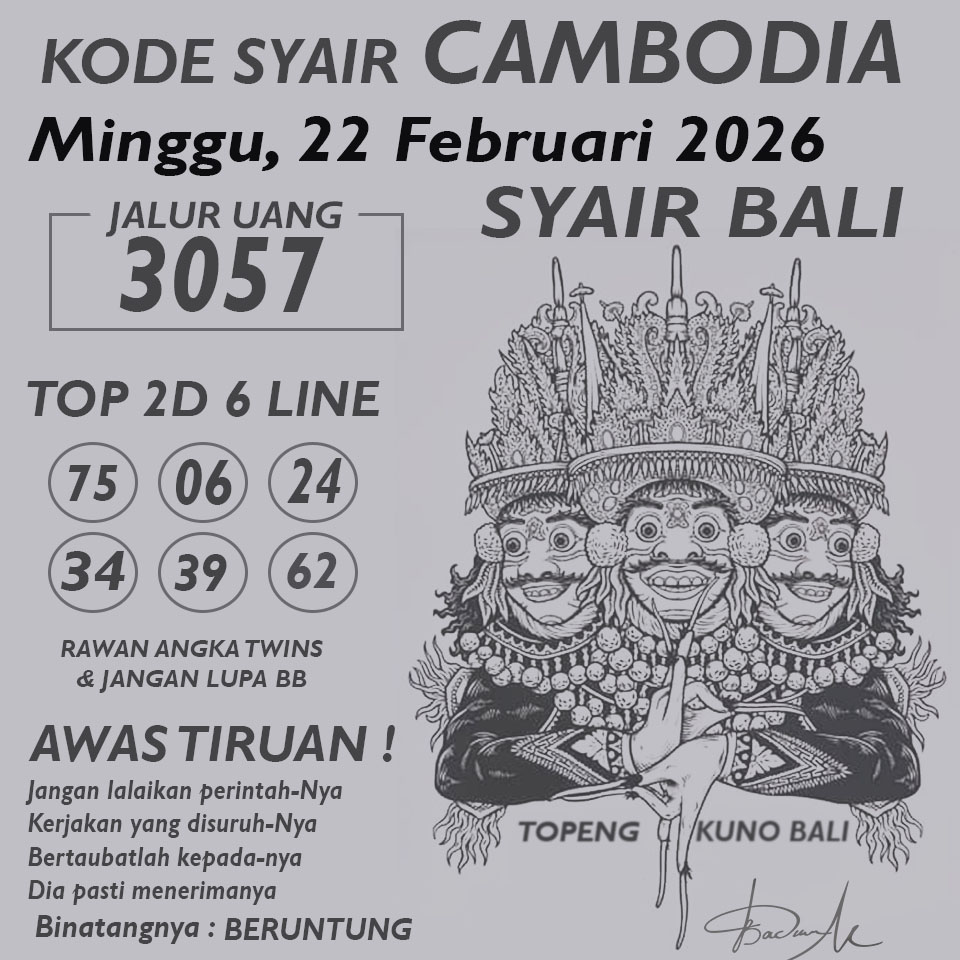 KODE SYAIR CAMBODIA
Minggu, 22 Februari 2026
SYAIR BALI
JALUR UANG
3057
TOP 2D 6 LINE
75 06 24
34 39 62
RAWAN ANGKA TWINS
& JANGAN LUPA BB
AWAS TIRUAN !
Jangan lalaikan perintah-Nya
Kerjakan yang disuruh-Nya
Bertaubatlah kepada-nya
Dia pasti menerimanya
Binatangnya : BERUNTUNG
TOPENG KUNO BALI